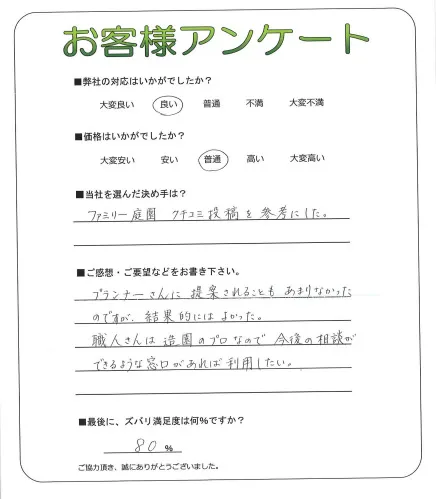 お客様アンケート
■弊社の対応はいかがでしたか?
大変良い 良い 普通 不満 大変不満
■価格はいかがでしたか?
大変安い 安い 普通 高い 大変高い
■当社を選んだ決め手は?
ファミリー庭園 クチコミ投稿を参考にした。
■ご感想・ご要望などをお書き下さい。
プランナーさんに提案されることもあまりなかった
のですが、結果的にはよかった。
職人さんは造園のプロなので今後の相談が
できるような窓口があれば利用したい。
■最後に、ズバリ満足度は何%ですか?
80 %
ご協力頂き、誠にありがとうございました。